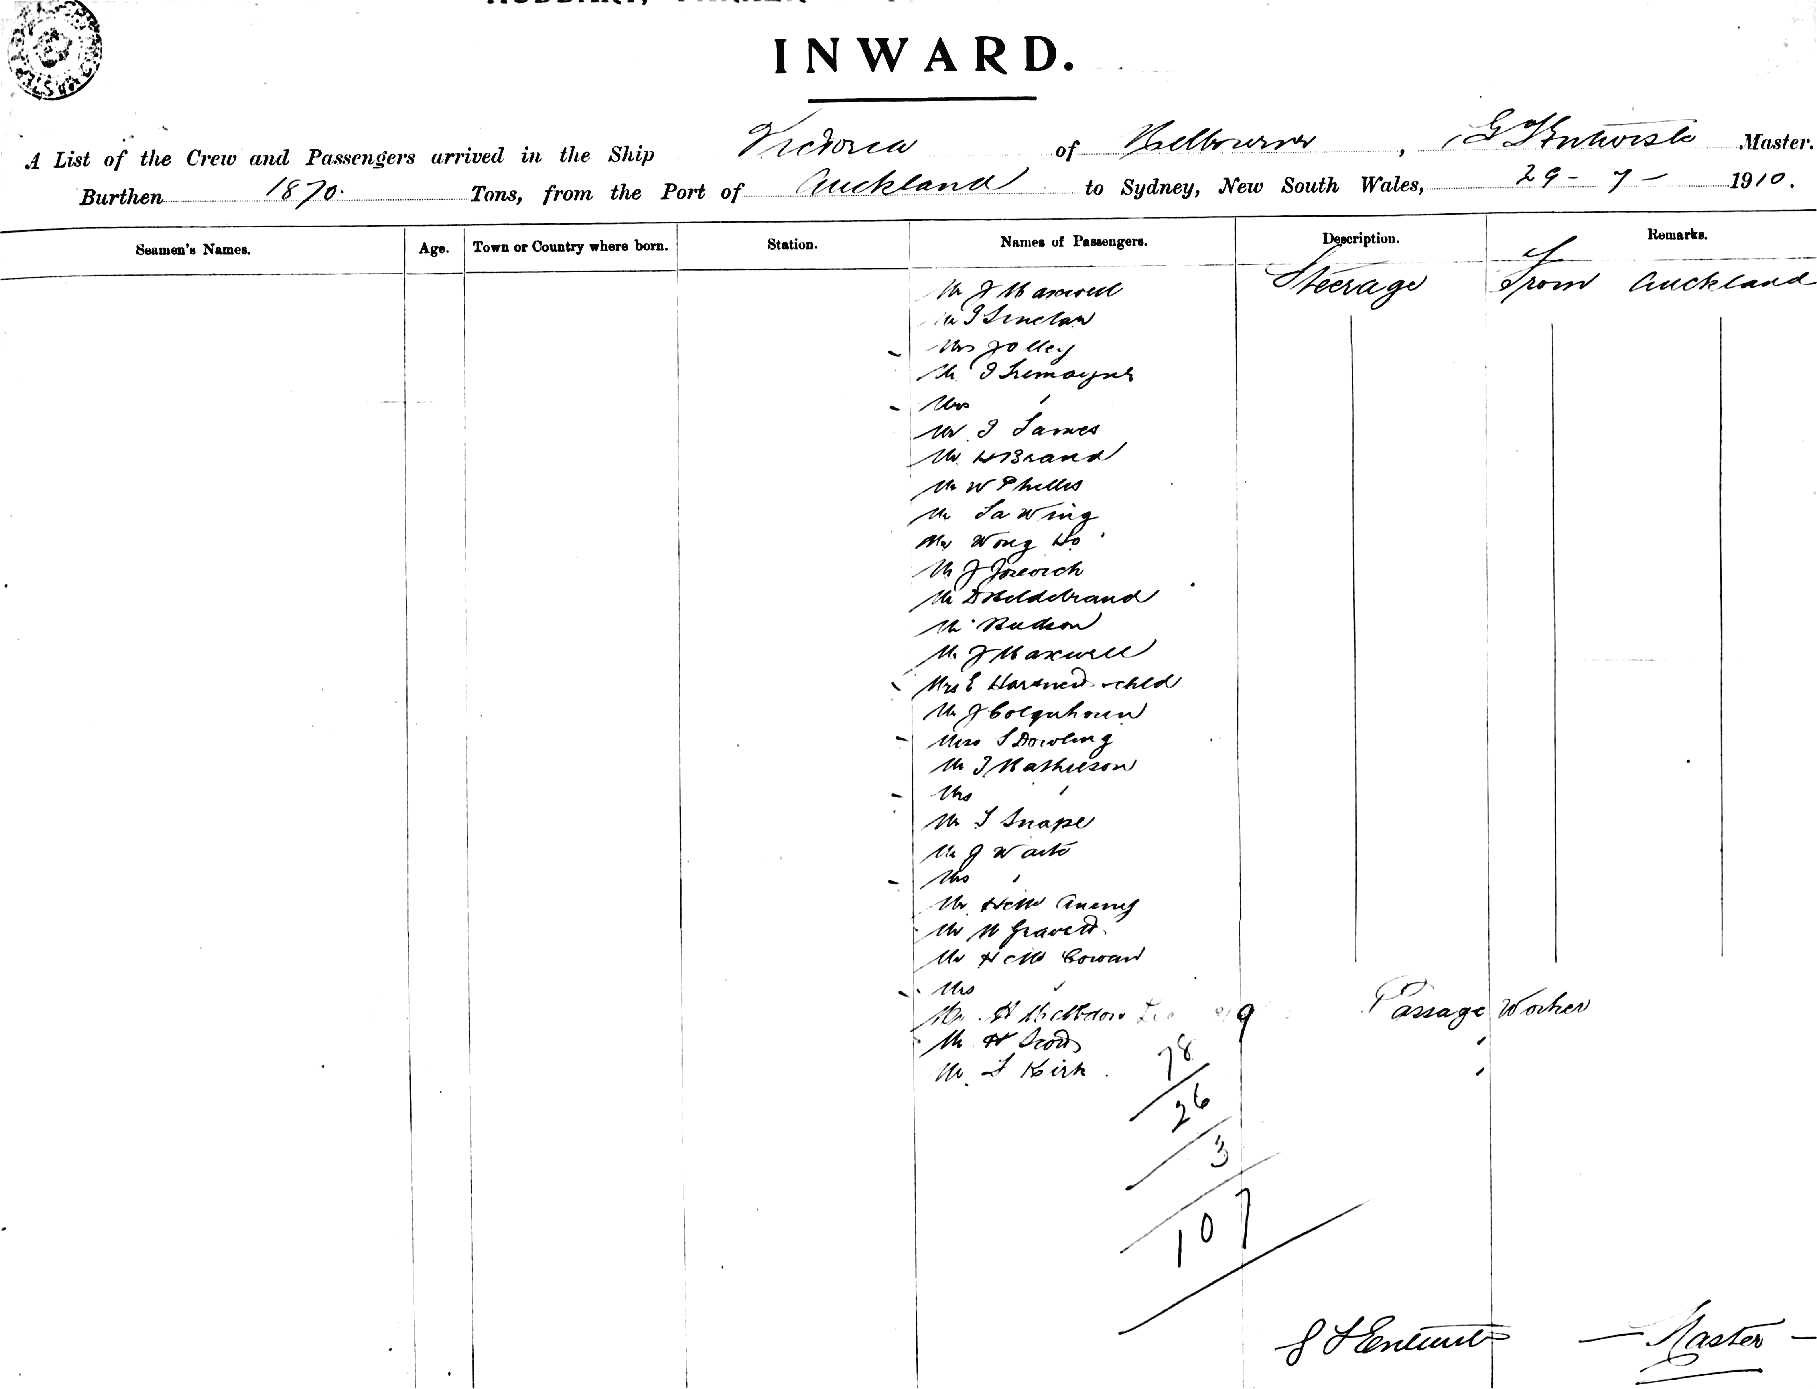 INWARD.
A List of the Crew and Passengers arrived in the Ship Victoria of Melbourne, Master.
Burthen 1870. Tons, from the Port of Auckland to Sydney, New South Wales, 29-7-1910.
Seamen's Names. Age. Town or Country where born. Station. Names of Passengers. Description. Remarks.
Mr J Maxwell Steerage From Auckland
Mr J Sinclair
Mrs Jolley
Mr J Tremayne
Mrs '
Mr J James
Mr H Brand
Mr W Phillis
Mr La Wing
Mr Wong Ho
Mr J
Mr D Hildebrand
Mr Hudson
Mr J Maxwell
Mrs E child
Mr J Colquhoun
Mrs S Dowling
Mr J Mathieson
Mrs '
Mr T Snape
Mr J Waite
Mrs '
Mr
Mr W Gravett
Mr H Cowan
Mrs '
Mr H Passage Worker
Mr H Scott '
Mr T Kirk '
78
26
3
107
Master